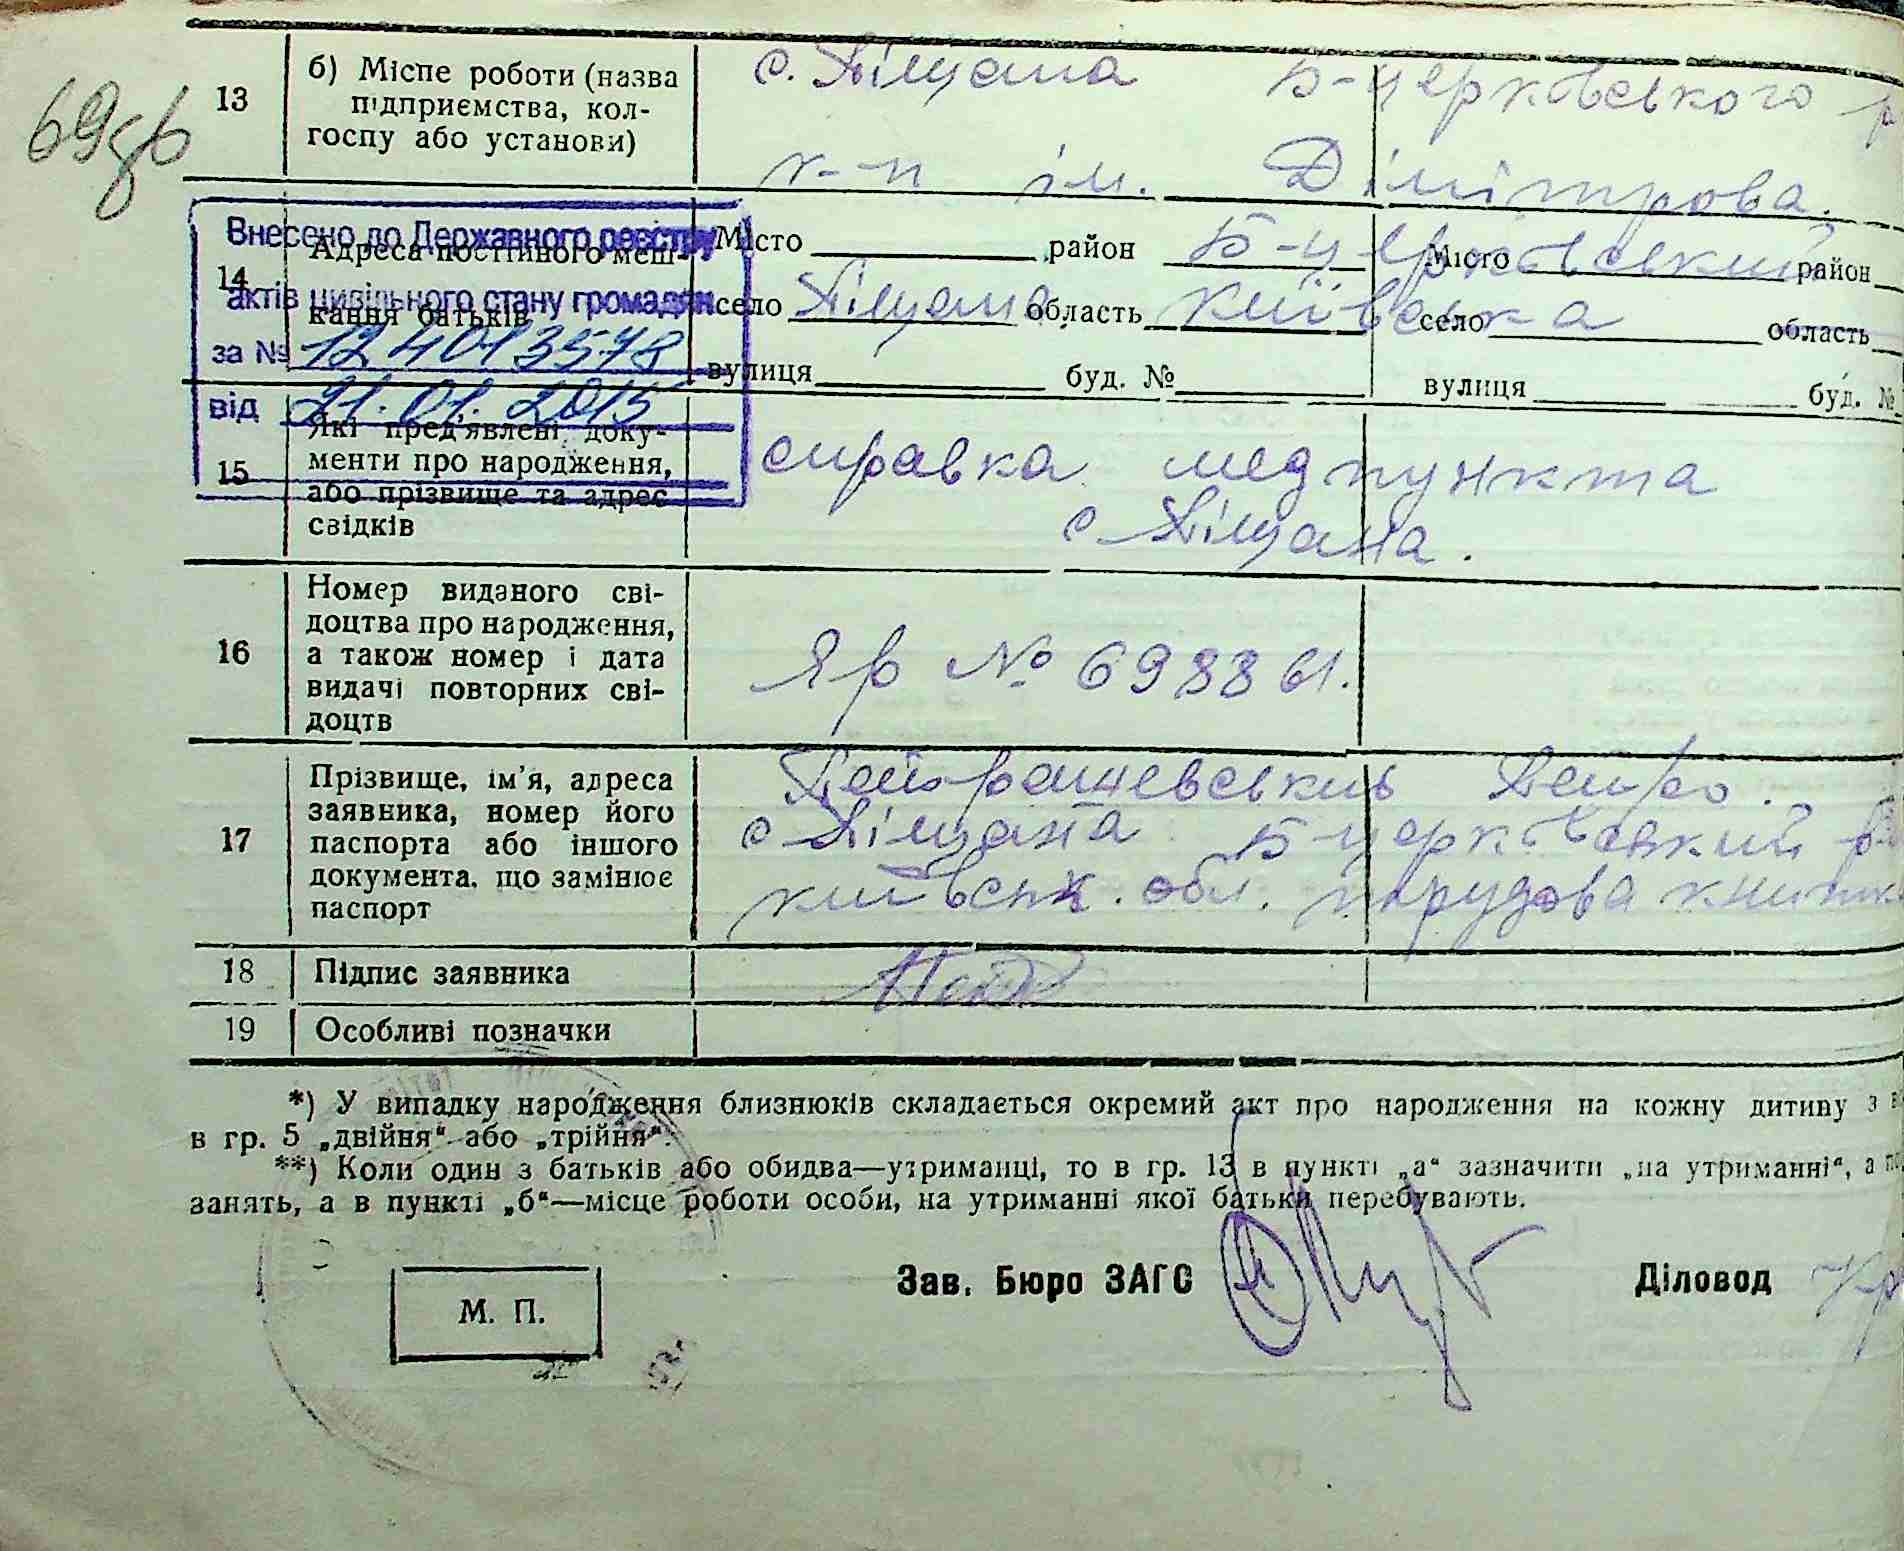 69зв
13
б) Місце роботи (назва
підприємства, кол-
госпу або установи)
с. Піщана Б-церковського р
к-п ім. Дімітрова.
Внесено до Державного реєстру
актів цивільного стану громадян
за № 124013578
від 21.01.2015
14
Адреса постійного меш-
кання батьків
Місто район Б-церковський
село Піщана область Київська
вулиця буд. №
Місто район
село область
вулиця буд. №
15
Які пред'явлені доку-
менти про народження,
або прізвище та адрес
свідків
справка медпункта
с Піщана.
16
Номер виданого сві-
доцтва про народження,
а також номер і дата
видачі повторних сві-
доцтв
Яр № 698861.
17
Прізвище, ім'я, адреса
заявника, номер його
паспорта або іншого
документа, що замінює
паспорт
Петро.
с Піщана Б-церковский
київськ. обл. трудова книжк
18
Підпис заявника
19
Особливі позначки
*) У випадку народження близнюків складається окремий акт про народження на кожну дитину з в
в гр. 5 „двійня“ або „трійня“.
**) Коли один з батьків або обидва—утриманці, то в гр. 13 в пункті „а“ зазначити „на утриманні“, а
занять, а в пункті „б“—місце роботи особи, на утриманні якої батьки перебувають.
М. П.
Зав. Бюро ЗАГС
Діловод